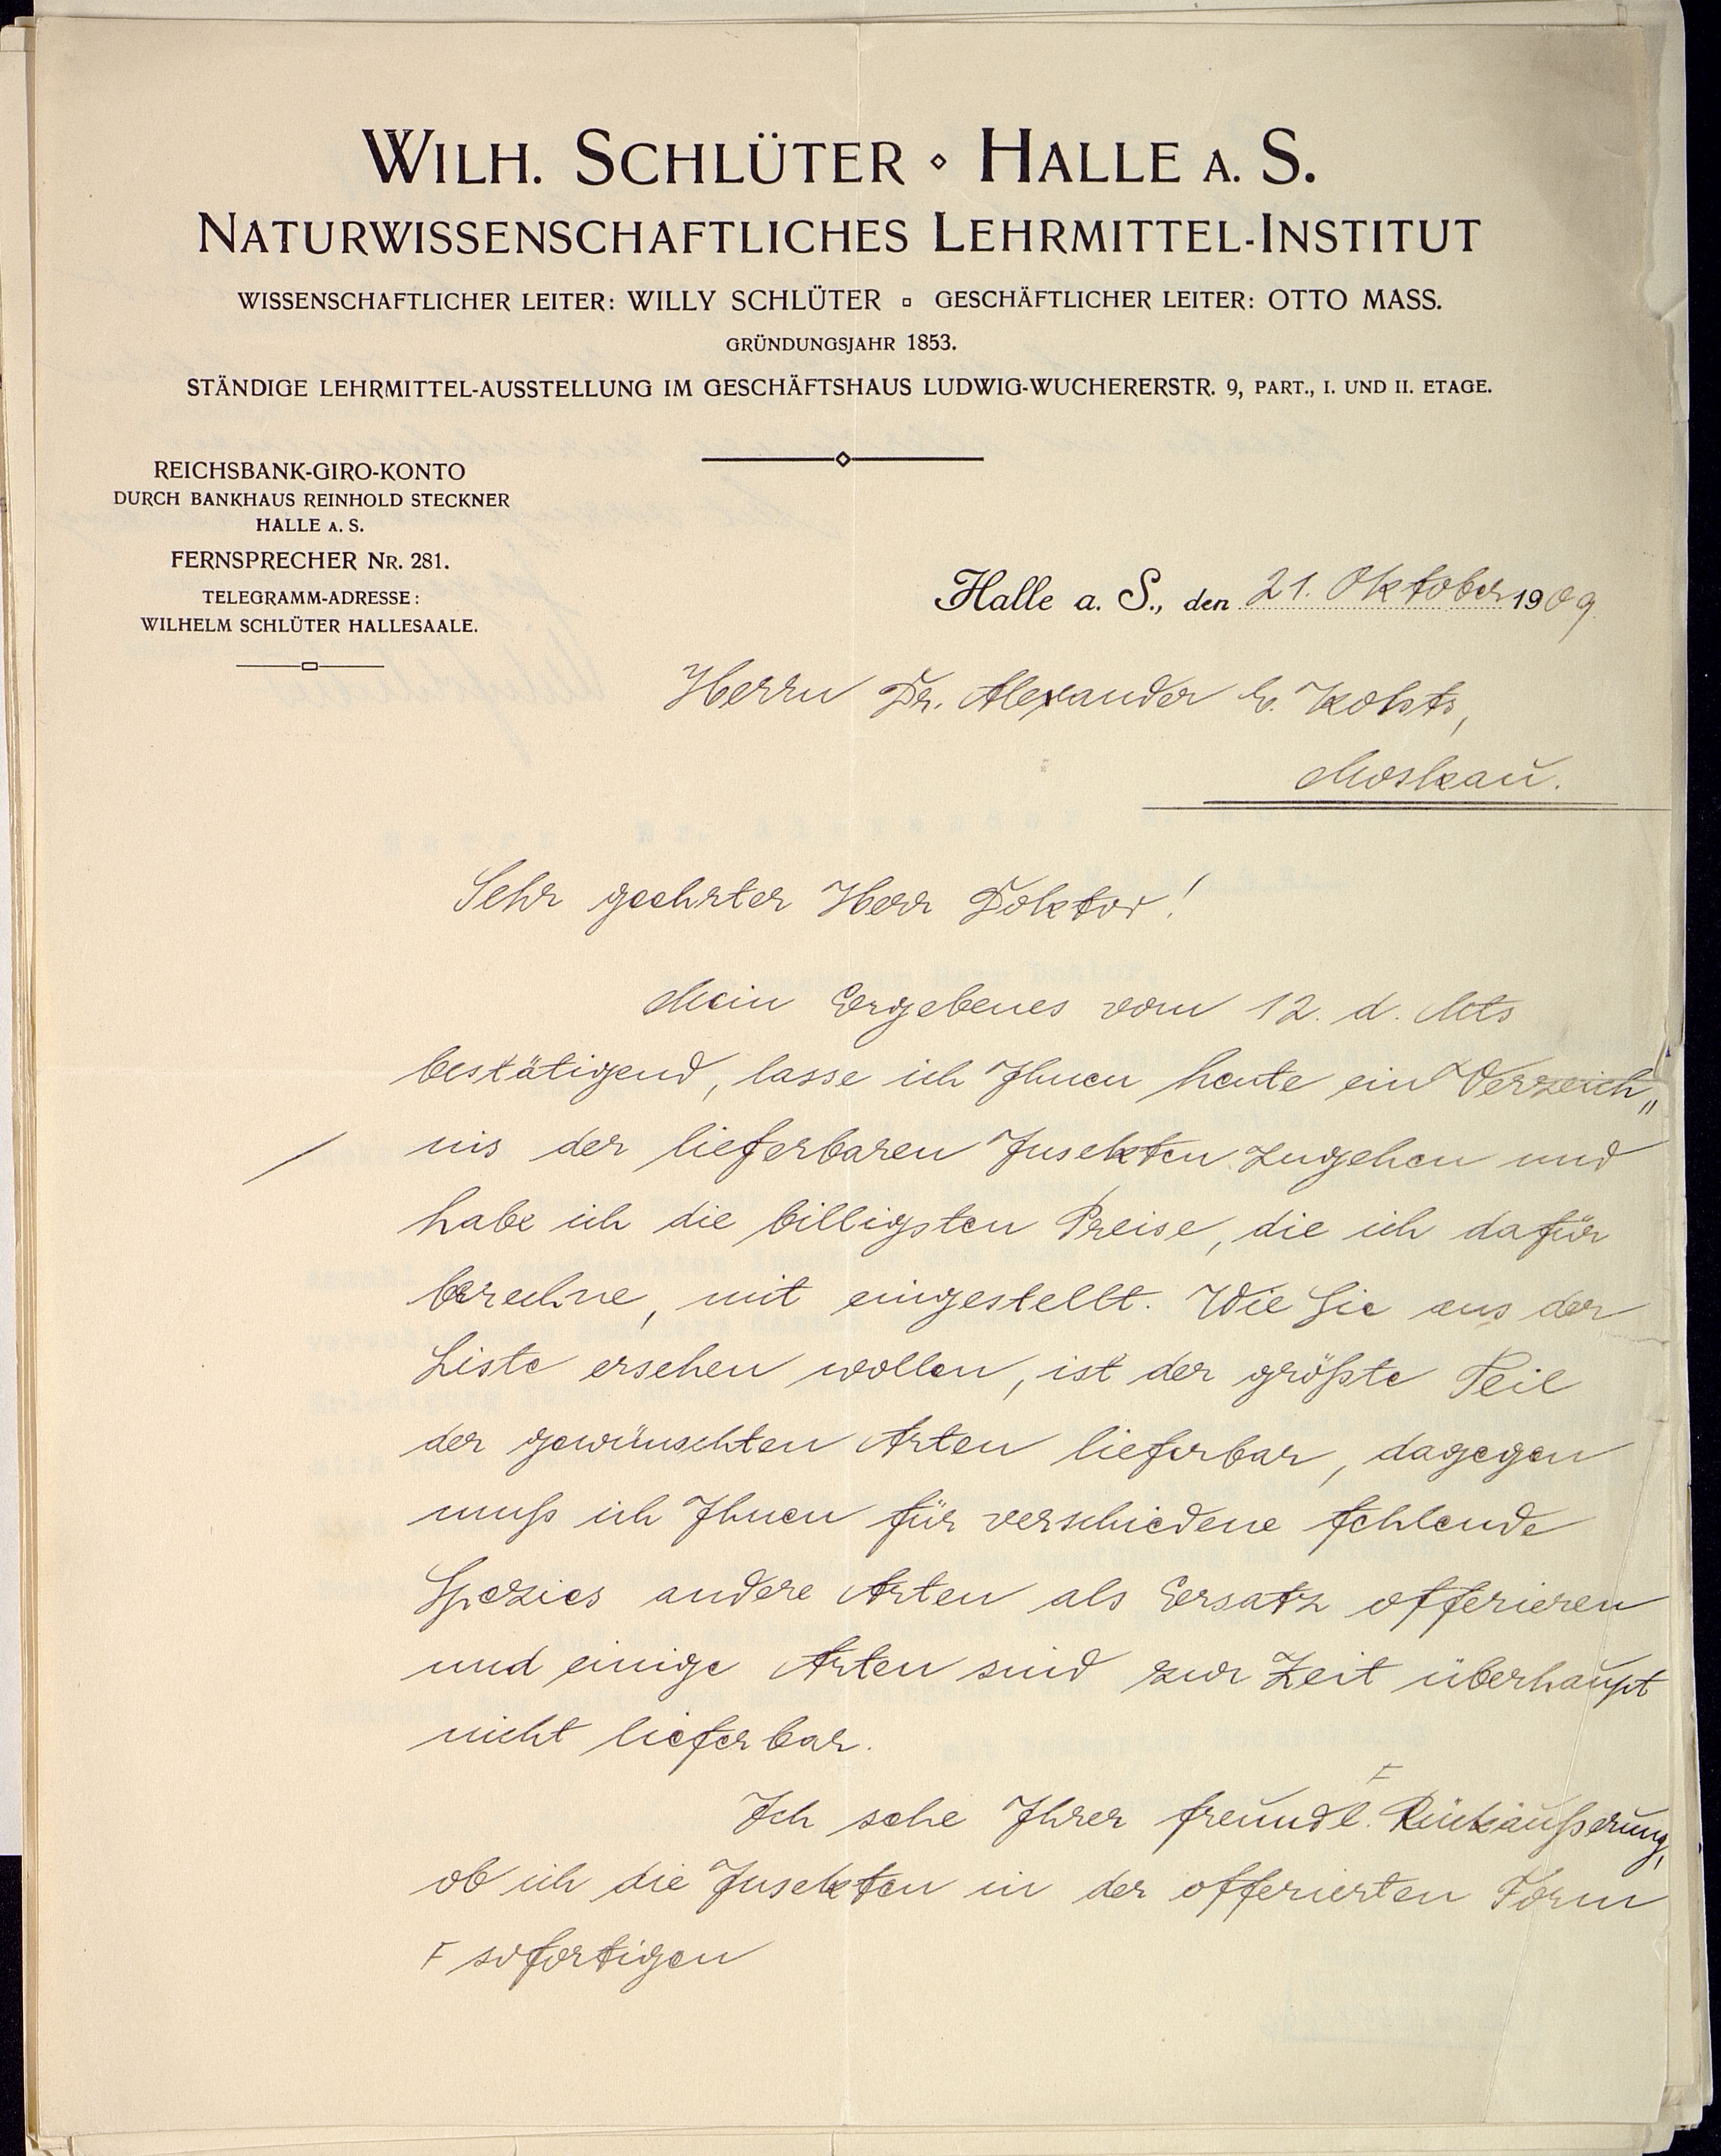 WILH. SCHLÜTER ⋄ HALLE A. S.
NATURWISSENSCHAFTLICHES LEHRMITTEL-INSTITUT
WISSENSCHAFTLICHER LEITER: WILLY SCHLÜTER ▫ GESCHÄFTLICHER LEITER: OTTO MASS.
GRÜNDUNGSJAHR 1853.
STÄNDIGE LEHRMITTEL-AUSSTELLUNG IM GESCHÄFTSHAUS LUDWIG-WUCHERERSTR. 9, PART., I. UND II. ETAGE.
REICHSBANK-GIRO-KONTO
DURCH BANKHAUS REINHOLD STECKNER
HALLE A. S.
FERNSPRECHER NR. 281.
TELEGRAMM-ADRESSE:
WILHELM SCHLÜTER HALLESAALE.
Halle a. S., den 21. Oktober 1909
Herrn Dr. Alexander Kohts,
Moskau.
Sehr geehrter Herr Doktor!
Mein Ergebenes vom 12. d. Mts
bestätigend, lasse ich Ihnen heute ein Verzeich„
nis der lieferbaren Insekten zugehen und
habe ich die billigsten Preise, die ich dafür
berechne, mit eingestellt. Wie Sie aus der
Liste ersehen wollen, ist der größte Teil
der gewünschten Arten lieferbar, dagegen
muß ich Ihnen für verschiedene fehlende
Spezies andere Arten als Ersatz offerieren
und einige Arten sind zur Zeit überhaupt
nicht lieferbar.
Ich sehe Ihrer freundl. Ⱶ Rückäußerung,
ob ich die Insekten in der offerierten Form
Ⱶ sofortigen